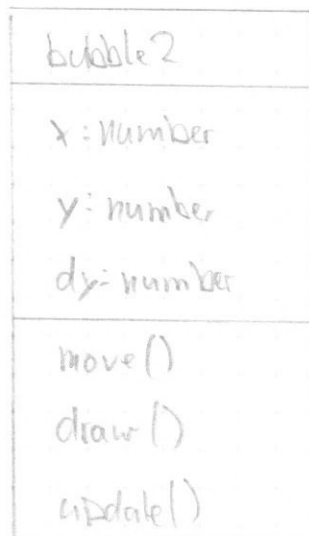 bubble2
x: number
y: number
dy: number
move()
draw()
update()